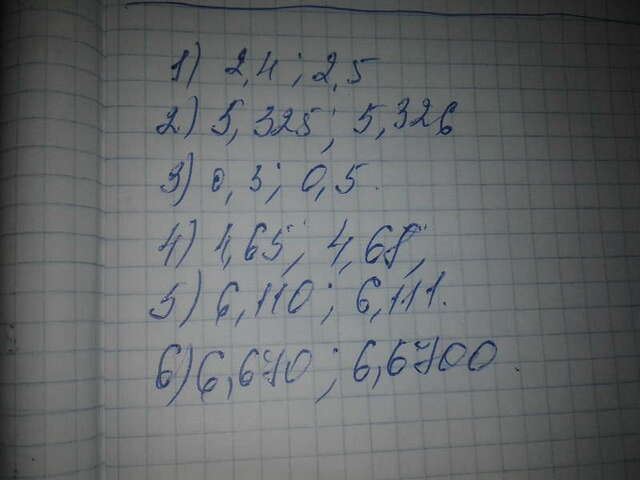 1) 2,4; 2,5
2) 5,325; 5,326
3) 0,3; 0,5.
4) 4,65; 4,68;
5) 6,110; 6,111.
6) 6,670; 6,6700.